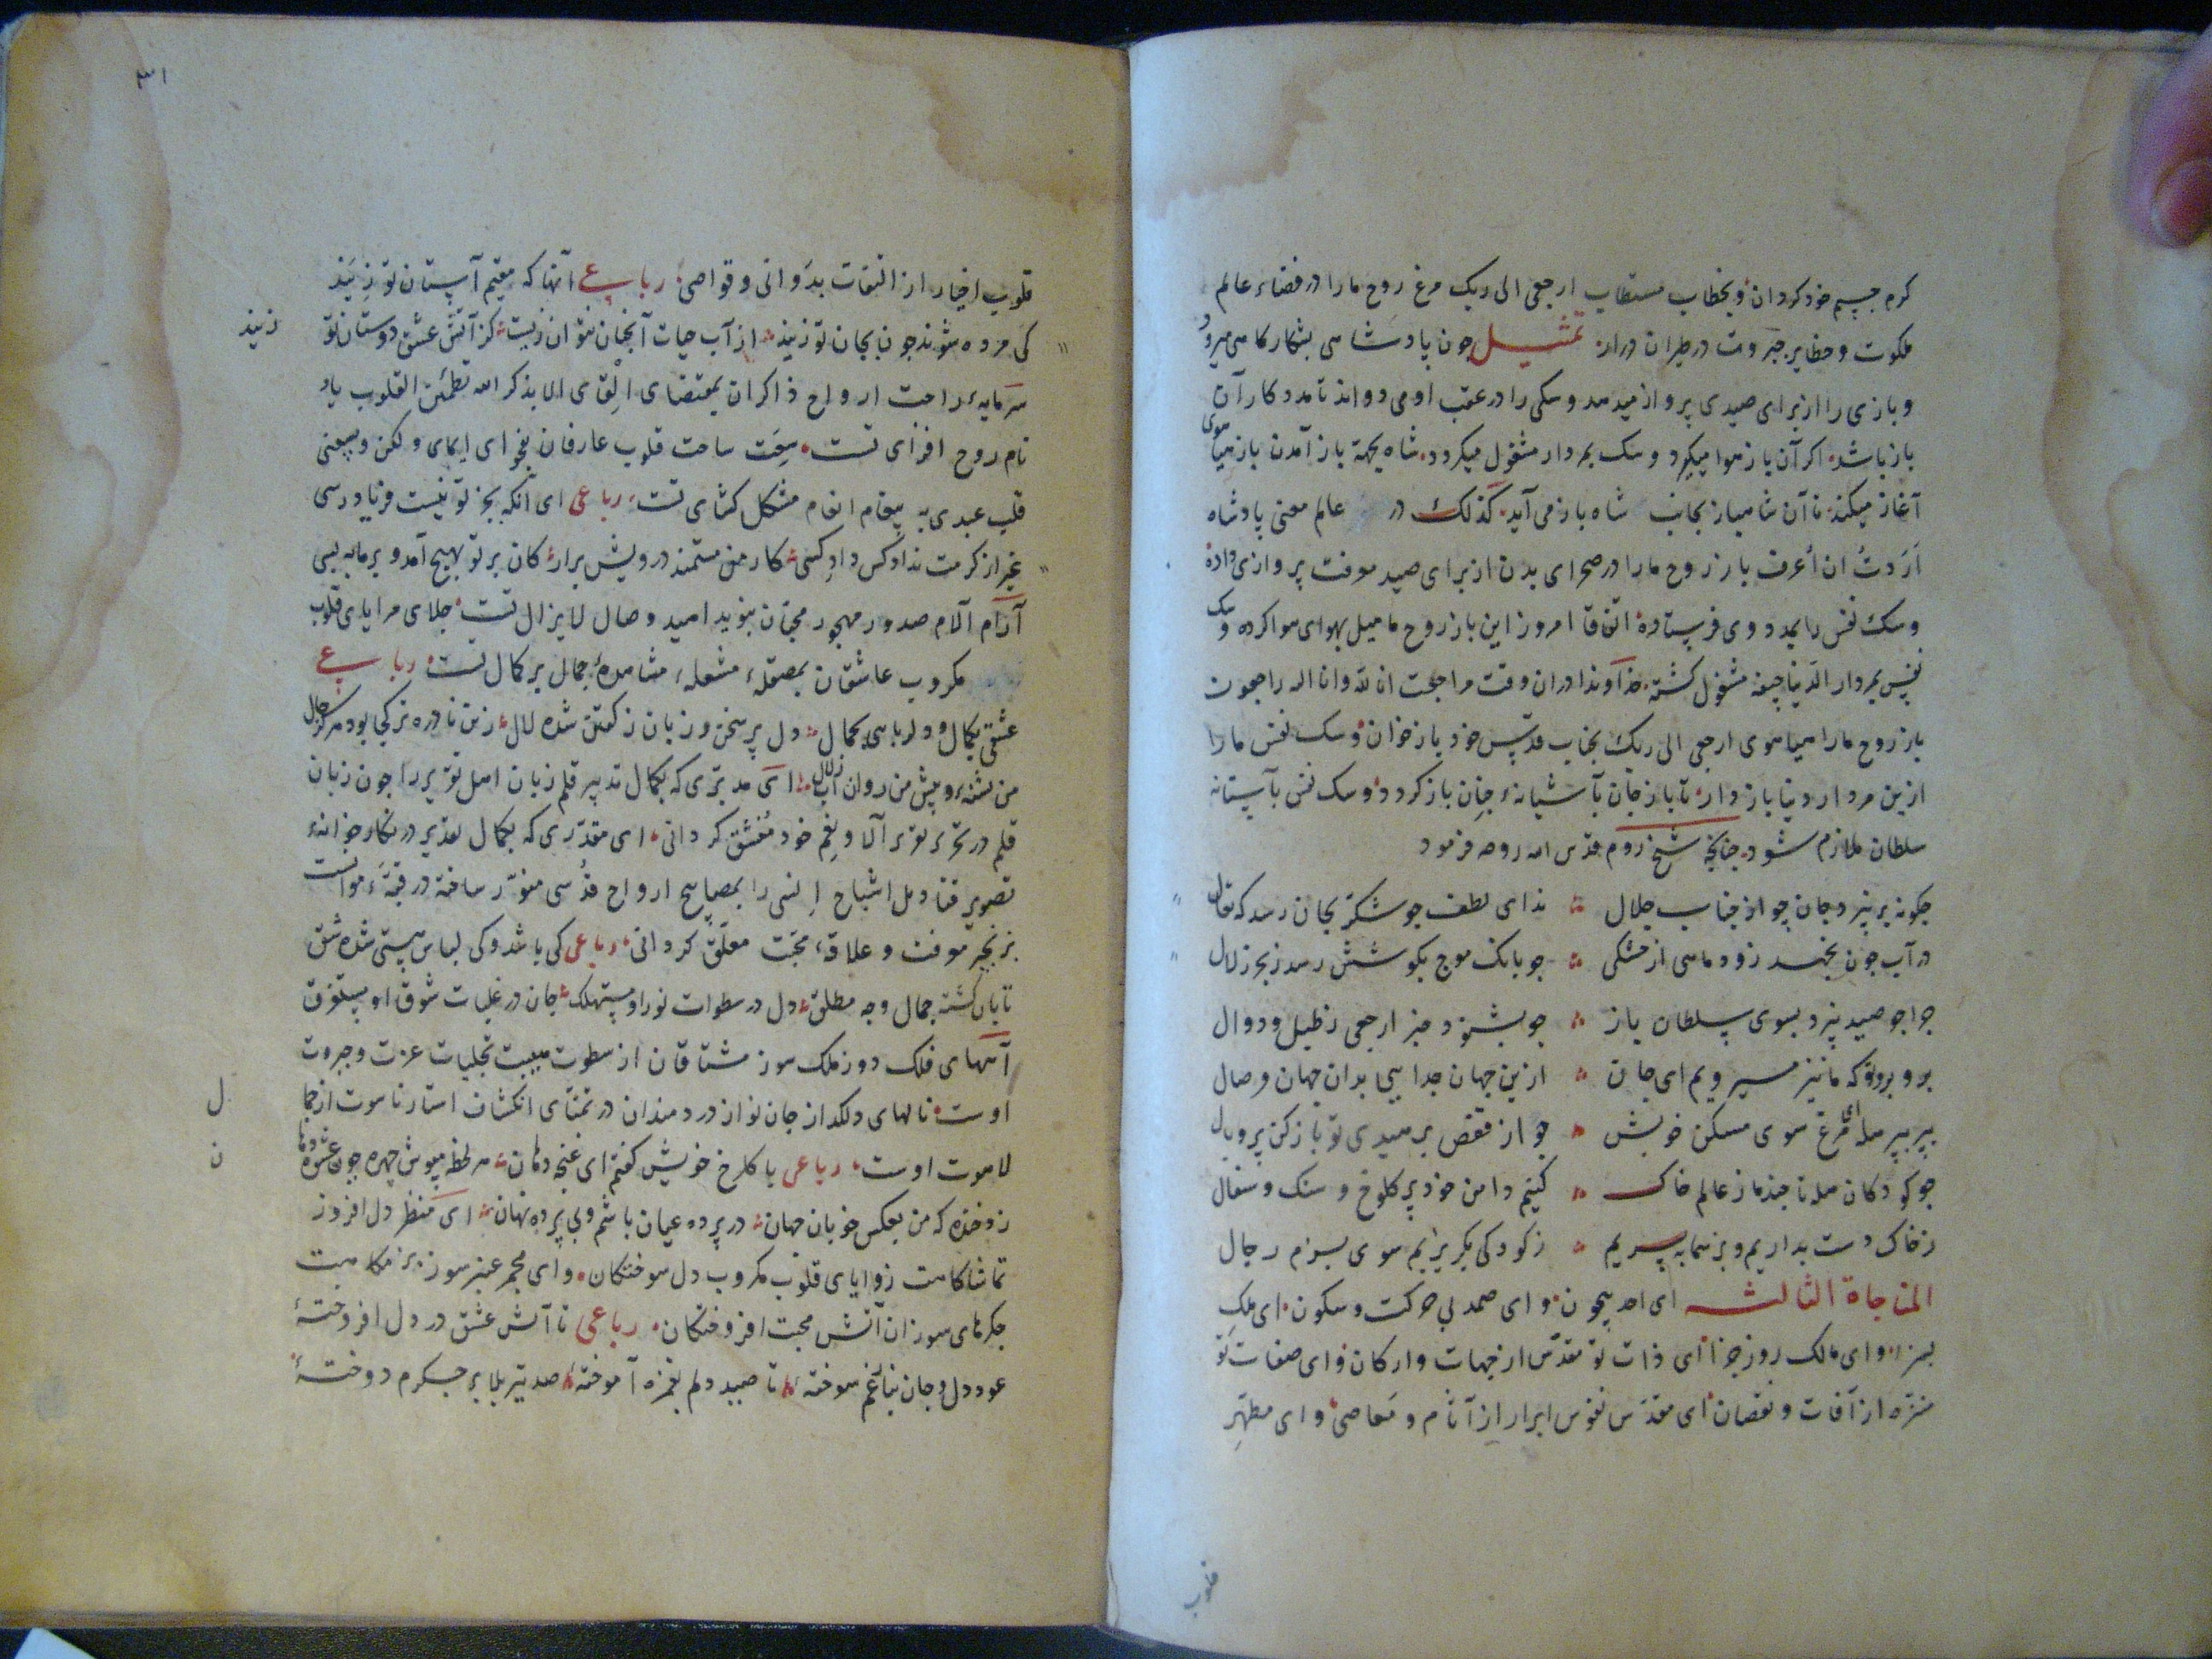 کرم جسیم خود کردان و بخطاب مستطاب ارجعی الی ربک مرغ روح ما را در فضاء عالم
ملکوت و حظایر جبروت در طیران درار تمثیل جون پادشاهی بشکار کاهی میرود
و بازی را از برای صیدی پرواز میدهد و سکی را در عقب او می دواند تا مددکار آن
باز باشد اکر آن باز هوا میکیرد و سک بمردار مشغول میکردد شاه بجهة باز آمدن باز هیاهوی
آغاز میکند تا آن شاهباز بجانب شاه باز می آید کذلک در عالم معنی پادشاه
اَرَدتُ ان اُعرف باز روح ما را در صحرای بدن از برای صید معرفت پروازی داده
و سک نفس را بمددوی فرستاده اتفاقا امروز این باز روح ما میل بهوای هوا کرده و سک
نفس بمردار الدنیا جیفه مشغول کشته خداوندا در ان وقت مراجعت انا لله و انا الیه راجعون
باز روح ما را هیاهوی ارجعی الی ربک بجناب قدس خود باز خوان و سک نفس ما را
ازین مردار دنیا باز دار تا باز جان بآشیانهٔ جنان باز کردد و سک نفس بآستانهٔ
سلطان ملازم شود جنانجه شیخ روم قدس الله روحه فرمود
جکونه برنپرد جان جو از جناب جلال ندای لطف جو شکر بجان رسد که تعال
در آب جون نجهد زود ماهی از خشکی جو بانک موج بکوشش رسد ز بحر زلال
جرا جو صید نپرد بسوی سلطان باز جو بشنود خبر ارجعی ز طبل و دوال
برو برو تو که ما نیز میرویم ای جان ازین جهان جدایی بدان جهان وصال
بپر بپر هله ای مرغ سوی مسکن خویش جو از قفص برهیدی تو باز کن پر و بال
جو کودکان هله تا جند ما ز عالم خاک کنیم دامن خود پر کلوخ و سنک و سفال
ز خاک دست بداریم و بر سما بپریم ز کودکی بکریزیم سوی بزم رجال
المناجاة الثالثه ای احد بیجون و ای صمد بی حرکت و سکون ای ملک
بسزا و ای مالک روز جزا ای ذات تو مقدس از جهات و ارکان و ای صفات تو
منزه از آفات و نقصان ای مقدس نفوس ابرار از آثام و معاصی و ای مطهر
قلوب
۳۱
قلوب اخیار از التفات بدوانی و قواصی رباعی آنها که مقیم آستان تو زیند
کی مرده شوند جون بجان تو زیند از آب حیات آنجنان نتوان زیست کز آتش عشق دوستان تو
زیند
سرمایهٔ راحت ارواح ذاکران بمقتضای الا بذکر الله تطمئن القلوب یاد
نام روح افزای تست سعت ساحت قلوب عارفان بفحوای ولکن وسعنی
قلب عبدی به پیغام انعام مشکل کشای تست رباعی ای آنکه بجز تو نیست فریادرسی
غیر از کرمت نداد کس داد کسی کار من مستمند درویش برار کان بر تو بهیج آمد و بر ما به بسی
آرام آلام صدور مهجور محبان بنوید امید وصال لا یزال تست جلای مرایای قلوب
مکروب عاشقان بمصقلهٔ مشعلهٔ مشاهدهٔ جمال بر کمال تست رباعی
عشقی بکمال و دلربایی بجمال دل پر سخن و زبان ز کفتن شده لال زین نادره تر کجا بود هرکز حال
من تشنه و پیش من روان آب زلال ای مدبری که بکمال تدبیر قلم زبان اهل تقریر را جون زبان
قلم در تحریر تقریر آلا و نعم خود منشق کردانی ای مقدری که بکمال تقدیر در نکارخانهٔ
تصویر قنادیل اشباح انسی را بمصابیح ارواح قدسی منور ساخته در قبهٔ
بزنجیر معرفت و علاقهٔ محبت معلق کردانی رباعی کی باشد و کی لباس هستی شده شق
تابان کشته جمال وجه مطلق دل در سطوات نور او مستهلک جان در غلبات شوق او مستغرق
آههای فلک دوز ملک سوز مشتاقان از سطوت هیبت تجلیات عزت و جبروت
اوست نالهای دلکداز جان نواز دردمندان در تمنای انکشاف استار ناسوت از جمال
لاهوت اوست رباعی با کلرخ خویش کفتم ای غنجه دهان هر لحظه مپوش جهره جون عشوه دهان
زد خنده که من بعکس خوبان جهان در پرده عیان باشم و بی پرده نهان ای منظر دل افروز
تماشاکاهت زوایای قلوب مکروب دل سوختکان و ای مجمر عنبرسوز بزمکاهت
جکرهای سوزان آتش محبت افروختکان رباعی تا آتش عشق در دل افروختهٔ
عود دل و جان بنار غم سوختهٔ تا صید دلم بغمزه آموختهٔ صد تیر بلا بر جکرم دوختهٔ